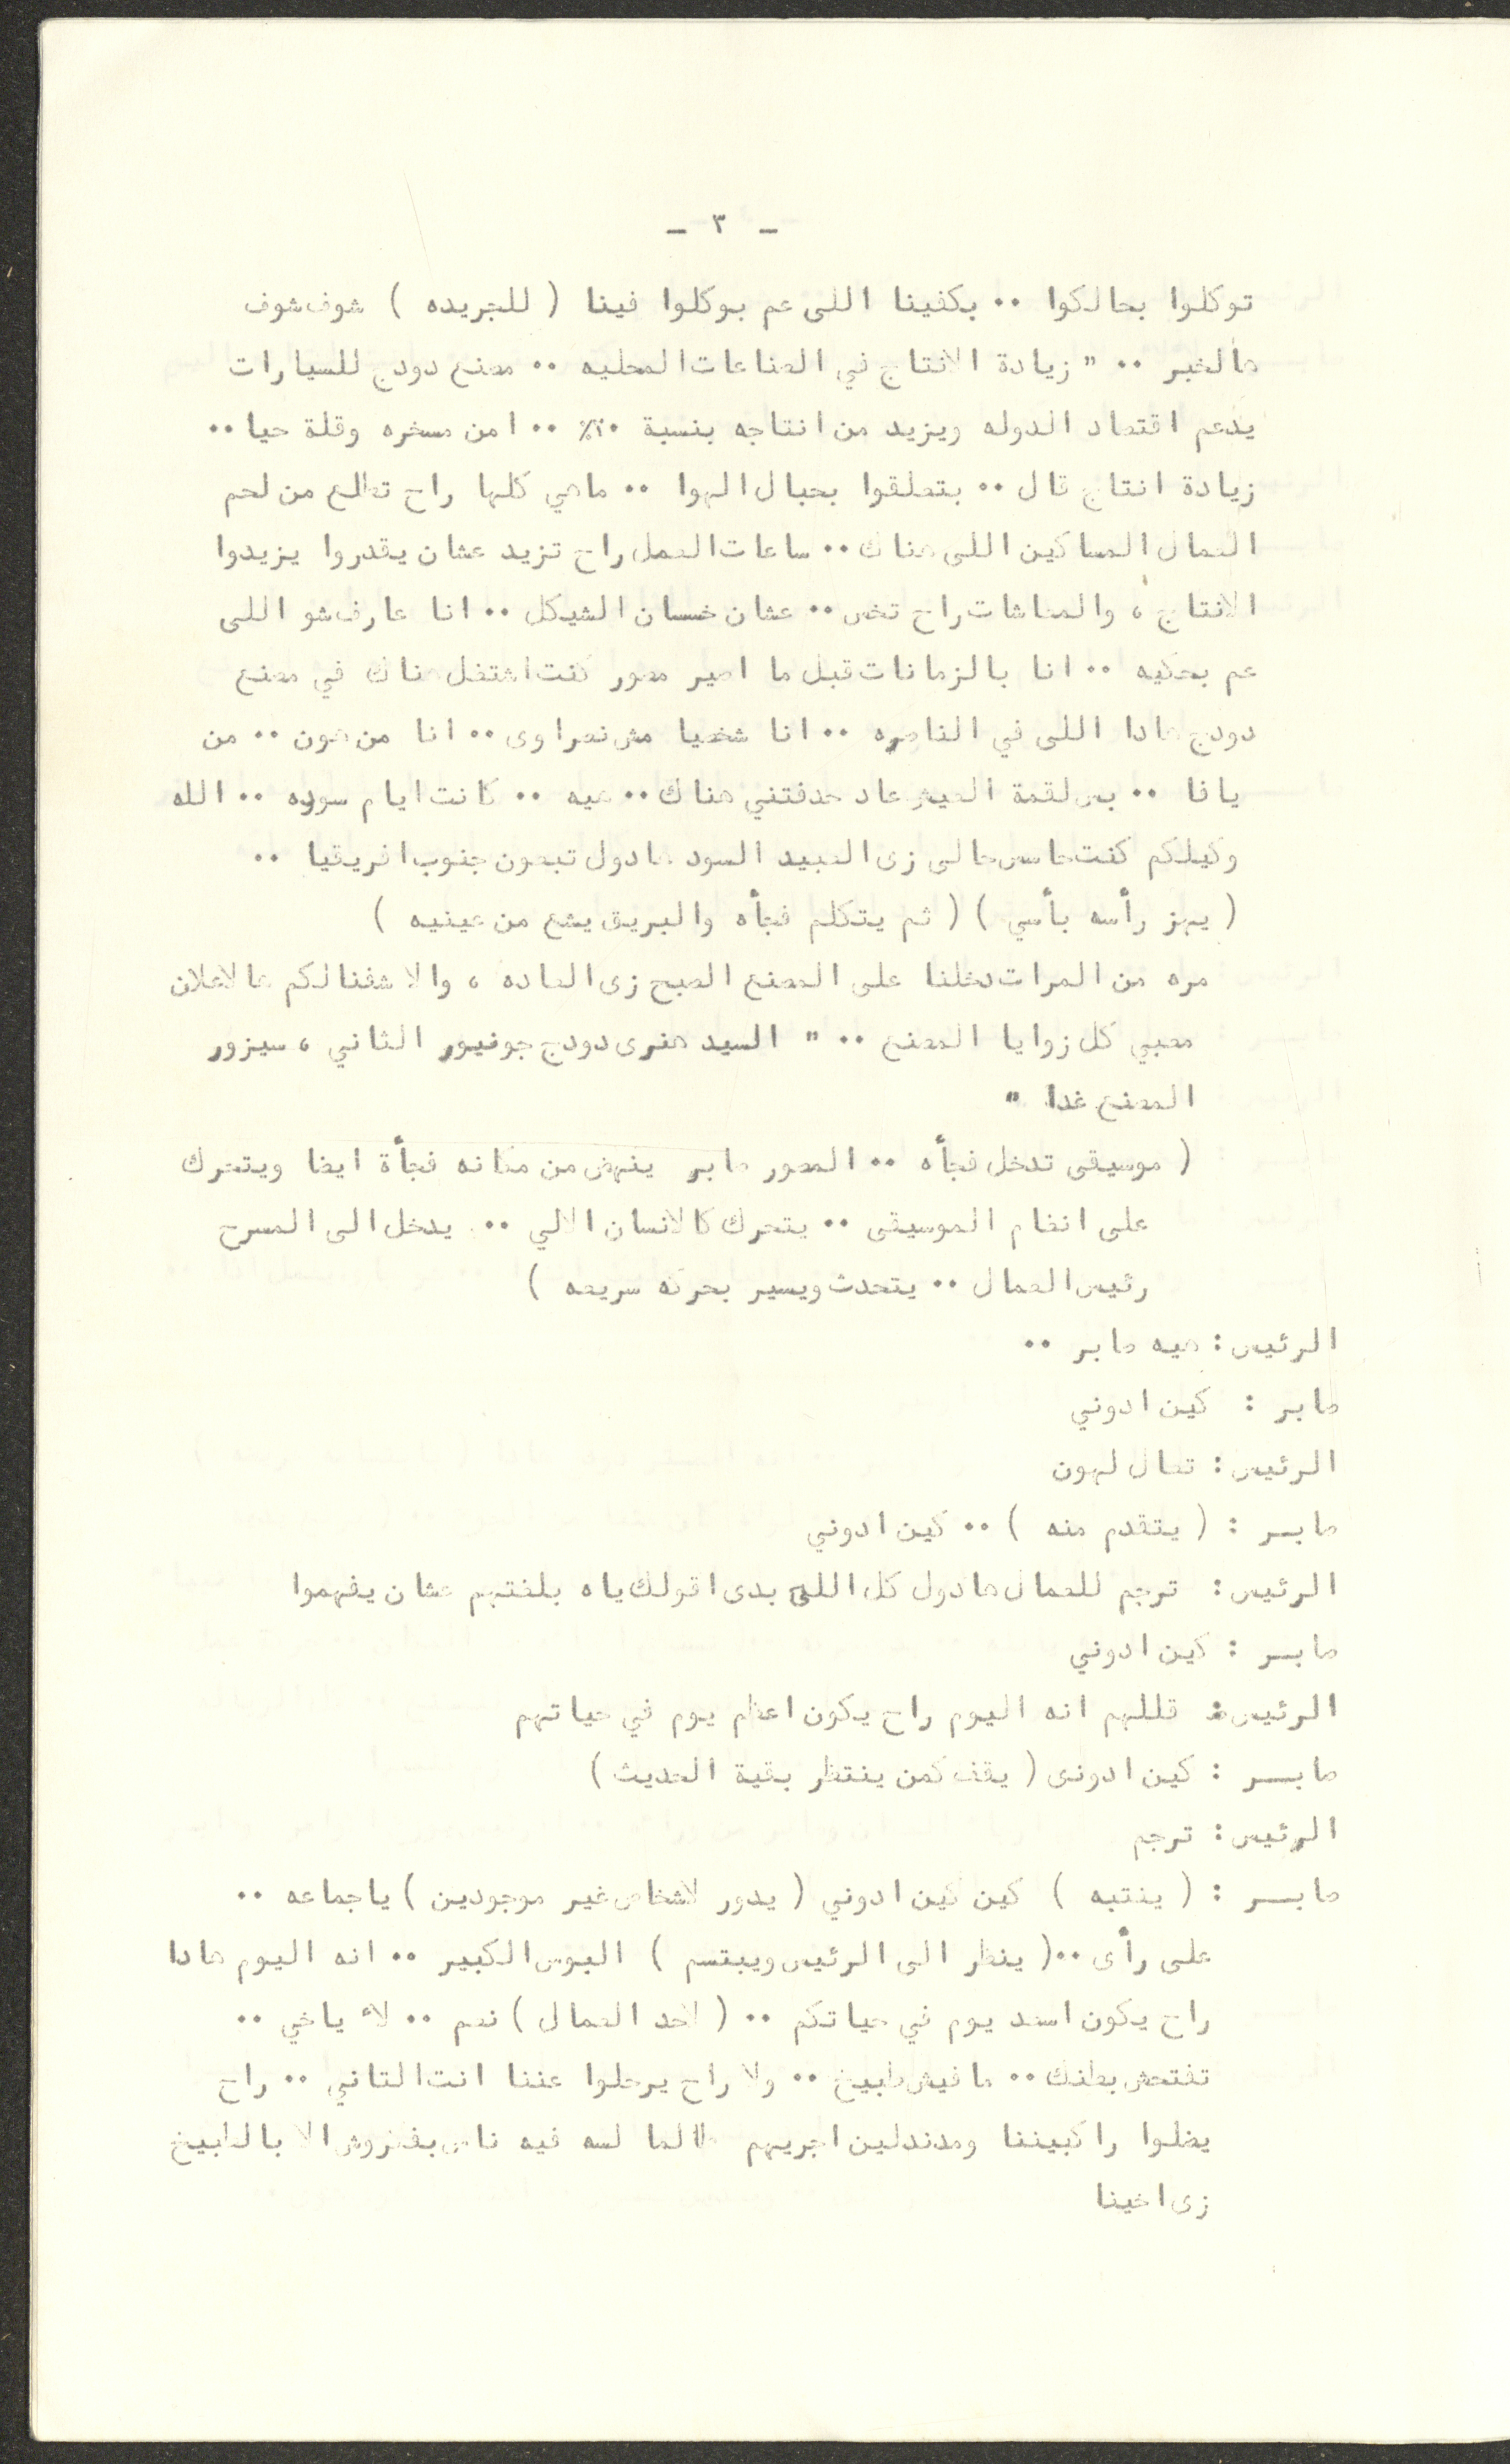 - ٣ -
توكلوا بحالكوا ·· بكفينا اللى عم بوكلوا فينا ( للجريده ) شوف شوف
هالخبر ·· " زيادة الانتاج في الصناعات المحليه ·· مصنع دودج للسيارات
يدعم اقتصاد الدوله ويزيد من انتاجه بنسبة ٢٠٪ ·· امن مسخره وقلة حيا ··
زيادة انتاج قال ·· بتعلقوا بحبال الهوا ·· ماهي كلها راح تطلع من لحم
العمال المساكين اللى هناك ·· ساعات العمل راح تزيد عشان يقدروا يزيدوا
الانتاج ، والمعاشات راح تخس ·· عشان خسان الشيكل ·· انا عارف شو اللى
عم بحكيه ·· انا بالزمانات قبل ما اصير مصور كنت اشتغل هناك في مصنع
دودج هادا اللى في الناصره ·· انا شخصيا مش نصراوى ·· انا من هون ·· من
يافا ·· بس لقمة العيش عاد حدفتني هناك ·· هيه ·· كانت ايام سوده ·· الله
وكيلكم كنت حاسس حالى زى العبيد السود هادول تبعون جنوب افريقيا ··
( يهز رأسه بأسي ) ( ثم يتكلم فجأه والبريق يشع من عينيه )
مره من المرات دخلنا على المصنع الصبح زى العاده ، والا شفنالكم هالاعلان
معبي كل زوايا المصنع ·· " السيد هنرى دودج جونيور الثاني ، سيزور
المصنع غدا "
( موسيقى تدخل فجأه ·· المصور صابر ينهض من مكانه فجأة ايضا ويتحرك
على انغام الموسيقى ·· يتحرك كالانسان الالي ·· يدخل الى المسرح
رئيس العمال ·· يتحدث ويسير بحركه سريعه )
الرئيس : هيه صابر ··
صابر : كين ادوني
الرئيس : تعال لهون
صابـر : ( يتقدم منه ) ·· كين ادوني
الرئيس : ترجم للعمال هادول كل اللى بدى اقولك ياه بلغتهم عشان يفهموا
صابـر : كين ادوني
الرئيس : قللهم انه اليوم راح يكون اعظم يوم في حياتهم
صابــر : كين ادونى ( يقف كمن ينتظر بقية الحديث )
الرئيس : ترجم
صابــر : ( ينتبه ) كين كين ادوني ( يدور لاشخاص غير موجودين ) ياجماعه ··
على رأى ··( ينظر الى الرئيس ويبتسم ) البوس الكبير ·· انه اليوم هادا
راح يكون اسعد يوم في حياتكم ·· ( لاحد العمال ) نعم ·· لأ ياخي ··
تفتحش بطنك ·· مافيش طبيخ ·· ولا راح يرحلوا عننا انت التاني ·· راح
يظلوا راكبيننا ومدندلين اجريهم طالما لسه فيه ناس بفكروش الا بالطبيخ
زى اخينا